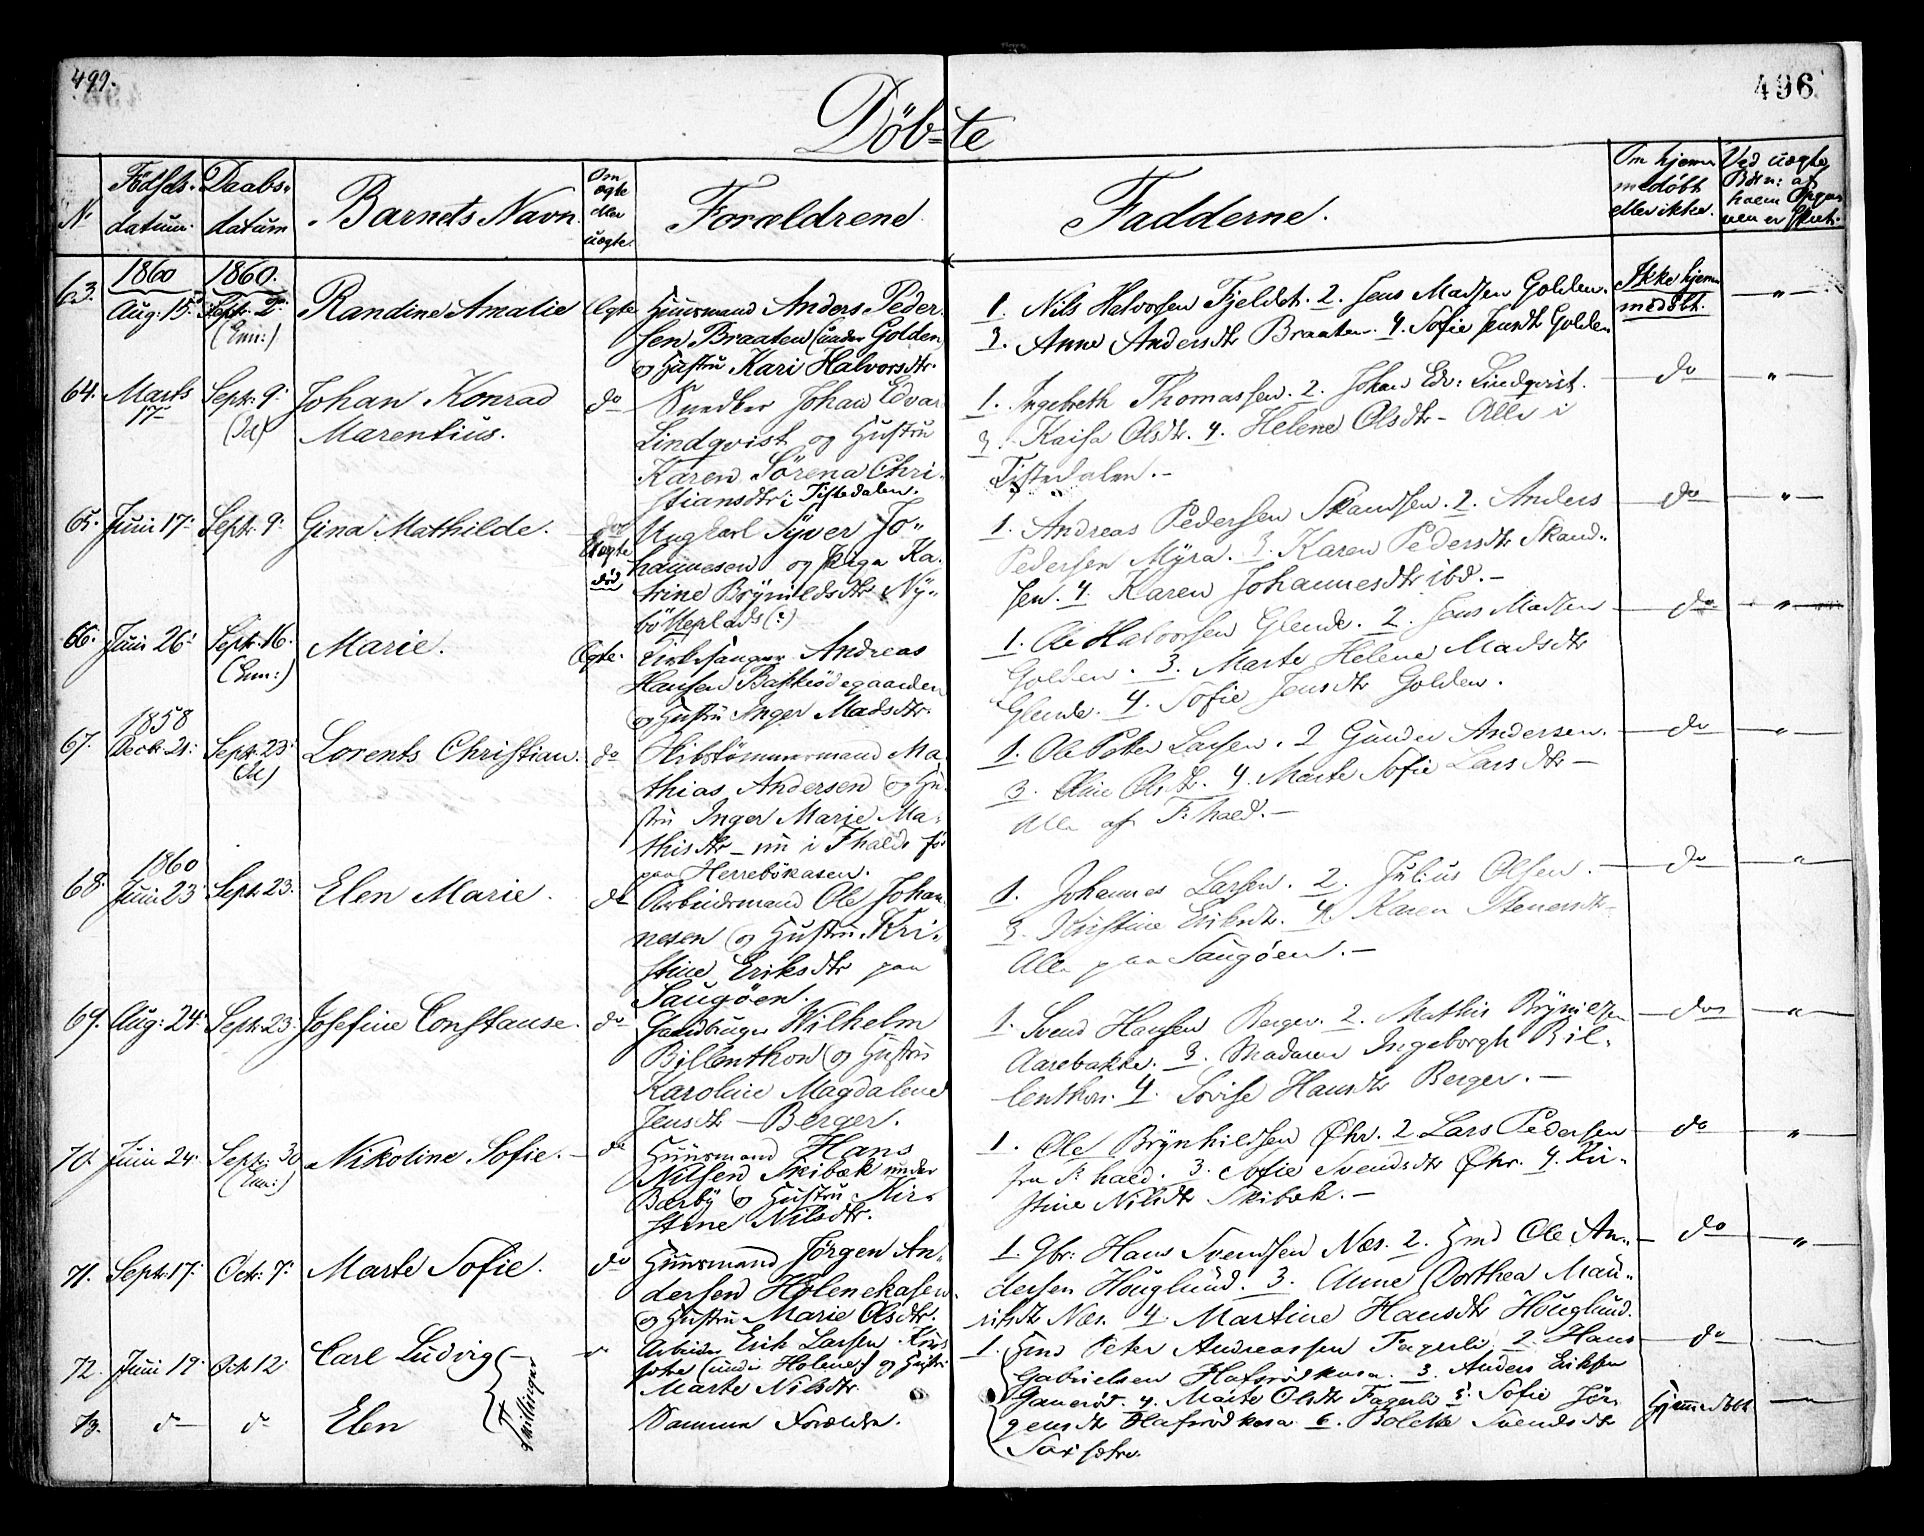 499.
496
Döb-te
N.
Födsels-
datum.
Daabs-
datum
Barnets Navn.
Om
ægte
eller
uægte.
Forældrene
Fadderne.
Om hjem-
medöbt
eller ikke.
Ved uægte
Börn: af
hvem
63. 1860 Aug: 15. 1860. Sept: 2: (Enn:) Randine Amalie Ægte
Huusmand Anders Peder-
sen Braaten (under Golden)
og Hustru Kari Halvorsdtr.
1. Nils Halvorsen Fjeldet. 2. Jens Madsen Golden.
3. Anne Andersdtr Braaten. 4. Sofie Jensdtr Golden
Ikke hjem-
medöbt.
64. Marts 17 Sept: 9: (Id) Johan Konrad
Marentius. do
Snedker Johan Edvar
Lindqvist og Hustru
Karen Sörena Chri-
stiansdtr i Tistedalen.
1. Ingebreth Thomassen. 2. Johan Edv: Lindqvist.
3. Kaisa Olsdtr. 4. Helene Olsdtr - Alle i
Tistedalen. -
do
65. Juni 17: Sept: 9: Gina Mathilde.
Uægte
död
Ungkarl Syver Jo-
hannesen og Pega Ka-
trine Brynildsdtr Ny-
1. Andreas Pedersen Skandsen. 2. Anders
Pedersen Myra. 3. Karen Pedersdtr Skand-
sen. 4. Karen Johannesdtr ibd. -
do
66. Juni 26: Sept: 16. (Enn:) Marie. Ægte.
Kirkesanger Andreas
Hansen Bakkeödegaarden
og Hustru Inger Madsdtr.
1. Ole Halvorsen Glende. 2. Jens Madsen
Golden. 3. Marte Helene Madsdtr
Glende. 4. Sofie Jensdtr Golden.
do
67. 1858 Decb: 21: Sept: 23: (Id) Lorents Christian. do
Skibstömmermand Ma-
thias Andersen og Hu-
stru Inger Marie Ma-
thisdtr - nu i Fhald för
paa Herrebökasen.
1. Ole Peter Larsen. 2 Gunder Andersen.
3. Oline Olsdtr. 4. Marte Sofie Larsdtr -
Alle af F: hald. -
do
68. 1860 Juni 23 Sept: 23. Elen Marie. do
Arbeidsmand Ole Johan-
nesen og Hustru Kri-
stine Eriksdtr paa
Saugöen.
1. Johannes Larsen. 2. Julius Olsen.
3. Kristine Eriksdtr. 4. Karen Stenersdtr-
Alle paa Saugöen. -
do
69. Aug: 24: Sept: 23: Josefine Constanse. do
Gaardbruger Wilhelm
Billenthon og Hustru
Karoline Magdalene
Jensdtr - Berger.
1. Svend Hansen Berger. 2. Mathis Brynildsen
Aarebakke. 3. Madame Ingeborgh Bil-
lenthon. 4. Lovise Hansdtr Berger. -
do
70. Juni 24: Sept: 30 (Enn:) Nikoline Sofie. - do
Huusmand Hans
Nilsen Skibæk under
Bærby og Hustru Kir-
stine Nilsdtr.
1. Ole Brynhildsen Öhr. 2 Lars Pedersen
fra F: hald. 3. Sofie Svendsdtr Öhr. 4. Kri-
stine Nilsdtr Skibæk. -
do
71. Sept: 17: Octr: 7: Marte Sofie. do
Huusmand Jörgen An-
dersen Holenekasen.
og Hustru Marie Olsdtr.
1. Gbr: Hans Svendsen Næs. 2. Hmd Ole An-
dersen Höuglund. 3. Anne Dorthea Mau-
ritsdtr Næs. 4. Martine Hansdtr Höuglund.
do
72. Juni 19 Octr 12: Carl Ludvig
Arbeider Erik Larsen
(under Holene) og Hustru
Marte Nilsdtr
1. Hmd Peter Andreassen Fagerli 2. Hans
Gabrielsen Hafsrödkasa. 3. Anders Eriksen
do
73. do do Elen
Tvillinger
Samme Forældre.
4. Marte Olsdtr Fagerli 5. Sofie Jör-
gensdtr Hafsrödkasa 6. Bolette Svendsdtr
Hjemmedöbt